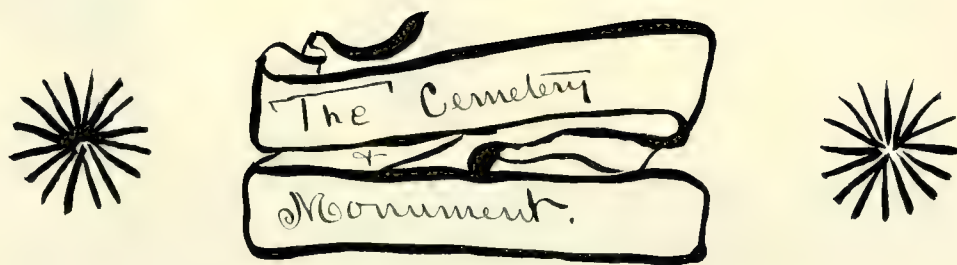 The Cemetery
+
Monument.